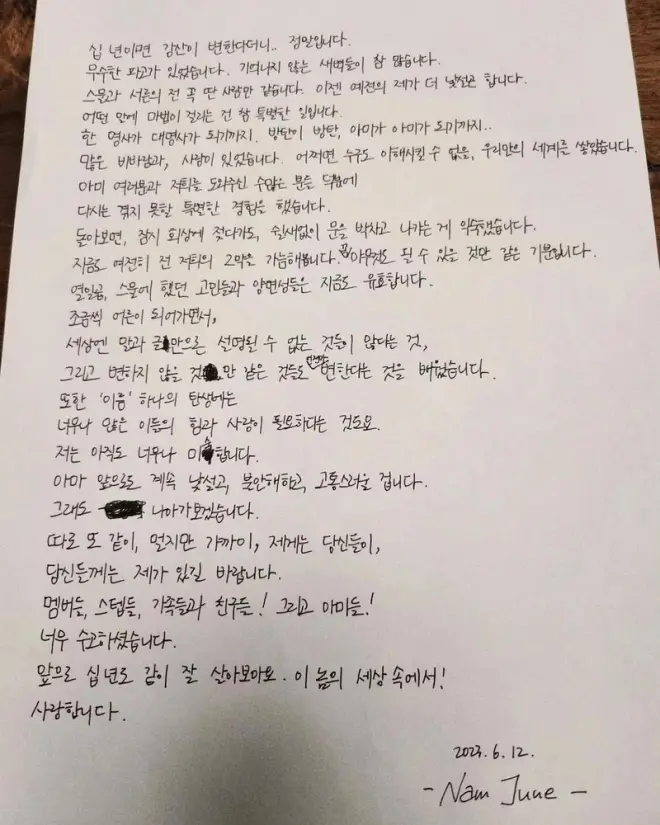 십 년이면 강산이 변한다더니.. 정말입니다.
무수한 파고가 있었습니다. 기억나지 않는 새벽들이 참 많습니다.
스물과 서른의 전 꼭 딴 사람만 같습니다. 이젠 예전의 제가 더 낯설곤 합니다.
어떤 안에 마법이 걸리는 건 참 특별한 일입니다.
한 명사가 대명사가 되기까지. 방탄이 방탄, 아미가 아미가 되기까지..
많은 비바람과, 사랑이 있었습니다. 어쩌면 누구도 이해시킬 수 없을, 우리만의 세계를 쌓았습니다.
아미 여러분과 저희를 도와주신 수많은 분들 덕분에
다시는 겪지 못할 특별한 경험을 했습니다.
돌아보면, 잠시 회상에 젖다가도, 쉴새없이 문을 박차고 나가는 게 익숙했습니다.
지금도 여전히 전 저희의 2막을 가늠해봅니다. 꼭 아무것도 될 수 있을 것만 같은 기분입니다.
열일곱, 스물에 했던 고민들과 양면성들은 지금도 유효합니다.
조금씩 어른이 되어가면서,
세상엔 말과 글만으론 설명될 수 없는 것들이 많다는 것,
그리고 변하지 않을 것만 같은 것들도 변한다는 것을 배웠습니다.
또한 '이름' 하나의 탄생에는
너무나 많은 이들의 힘과 사랑이 필요하다는 것도요.
저는 아직도 너무나 미숙합니다.
아마 앞으로도 계속 낯설고, 불안해하고, 고통스러울 겁니다.
그래도 나아가보겠습니다.
따로 또 같이, 멀지만 가까이, 제게는 당신들이,
당신들께는 제가 있길 바랍니다.
멤버들, 스텝들, 가족들과 친구들! 그리고 아미들!
너무 수고하셨습니다.
앞으로 십 년도 같이 잘 살아보아요. 이 놈의 세상 속에서!
사랑합니다.
2023. 6. 12.
- Nam June -